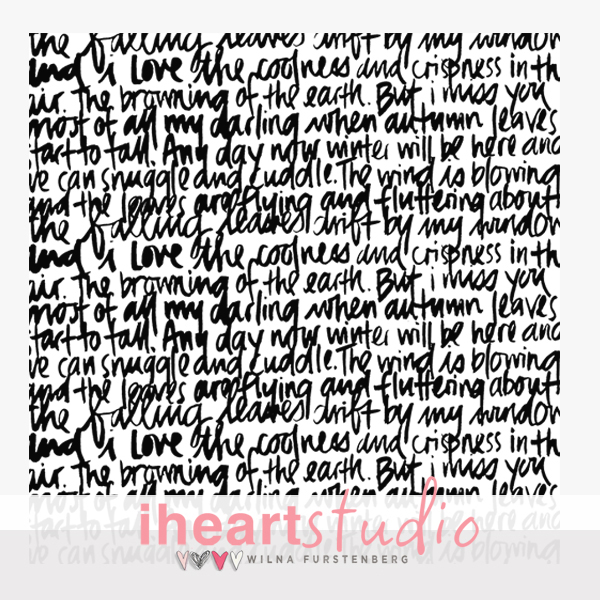 the falling leaves drift by my window
and i Love the coolness and crispness in th
air. The browning of the earth. But i miss you
most of all my darling when autumn leaves
start to fall. Any day now winter will be here and
we can snuggle and cuddle. The wind is blowing
and the leaves are flying and fluttering about
the falling leaves drift by my window
and i Love the coolness and crispness in th
air. The browning of the earth. But i miss you
most of all my darling when autumn leaves
start to fall. Any day now winter will be here and
we can snuggle and cuddle. The wind is blowing
and the leaves are flying and fluttering about
the falling leaves drift by my window
and i Love the coolness and crispness in th
air. The browning of the earth. But i miss you
most of all my darling when autumn leaves
start to fall. Any day now winter will be here and
we can snuggle and cuddle. The wind is blowing
iheartstudio
WILNA FURSTENBERG